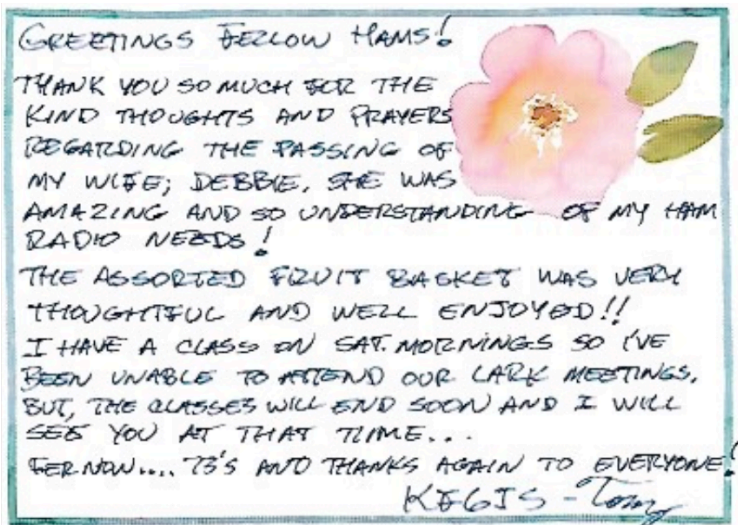 GREETINGS FELLOW HAMS!
THANK YOU SO MUCH FOR THE
KIND THOUGHTS AND PRAYERS
REGARDING THE PASSING OF
MY WIFE; DEBBIE. SHE WAS
AMAZING AND SO UNDERSTANDING OF MY HAM
RADIO NEEDS!
THE ASSORTED FRUIT BASKET WAS VERY
THOUGHTFUL AND WELL ENJOYED!!
I HAVE A CLASS ON SAT. MORNINGS SO I'VE
BEEN UNABLE TO ATTEND OUR LARK MEETINGS.
BUT, THE CLASSES WILL END SOON AND I WILL
SEE YOU AT THAT TIME...
FER NOW.... 73'S AND THANKS AGAIN TO EVERYONE!
- Tony